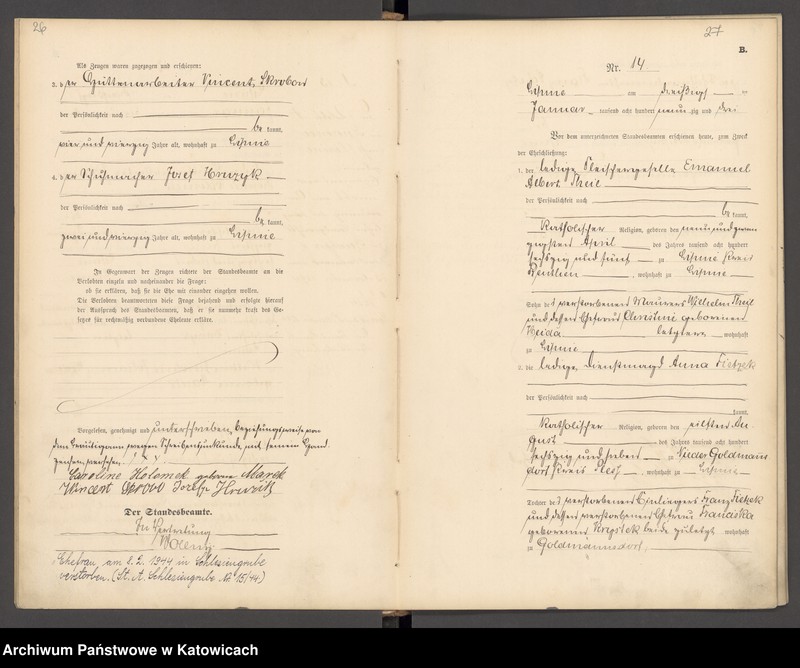 26
Als Zeugen waren zugezogen und erschienen:
3. der Hüttenarbeiter Vincent Skrobon
der Persönlichkeit nach
be kannt,
vier und vierzig Jahre alt, wohnhaft zu Lipine
4. der Schuhmacher Josef Hruzyk
der Persönlichkeit nach
be kannt,
zwei und vierzig Jahre alt, wohnhaft zu Lipine
In Gegenwart der Zeugen richtete der Standesbeamte an die
Verlobten einzeln und nacheinander die Frage:
ob sie erklären, daß sie die Ehe mit einander eingehen wollen.
Die Verlobten beantworteten diese Frage bejahend und erfolgte hierauf
der Ausspruch des Standesbeamten, daß er sie nunmehr kraft des Ge-
setzes für rechtmäßig verbundene Eheleute erkläre.
Vorgelesen, genehmigt und unterschrieben, beziehungsweise von
dem Bräutigam wegen Schreibensunkunde mit seinem Hand-
zeichen versehen
Caroline Holomek geborne Marek
Wincent Josef
Der Standesbeamte.
In Vertretung
Ehefrau am 8.2.1944 in Schlesiengrube
verstorben. (St. A. Schlesiengrube Nr 15/44)
27
B.
Nr. 14
Lipine am dreißigsten
Januar tausend acht hundert neun zig und drei
Vor dem unterzeichneten Standesbeamten erschienen heute, zum Zweck
der Eheschließung:
1. der ledige Fleischergeselle Emanuel
Albert Theil
der Persönlichkeit nach
be kannt,
katholischer Religion, geboren den neun und zwan-
zigsten April des Jahres tausend acht hundert
sechszig und fünf zu Lipine Kreis
Beuthen, wohnhaft zu Lipine
Sohn des verstorbenen Maurers Wilhelm Theil
und dessen Ehefrau Christine geborenen
letztere wohnhaft
zu Lipine
2. die ledige Dienstmagd Anna Fietzek
der Persönlichkeit nach
kannt,
katholischer Religion, geboren den elften Au-
gust des Jahres tausend acht hundert
sechszig und sieben zu Nieder Goldmanns-
dorf Kreis Pless, wohnhaft zu Lipine
Tochter des verstorbenen Einliegers Franz Fietzek
und dessen verstorbenen Ehefrau Franciska
geborenen beide zuletzt wohnhaft
zu Goldmannsdorf
Archiwum Państwowe w Katowicach